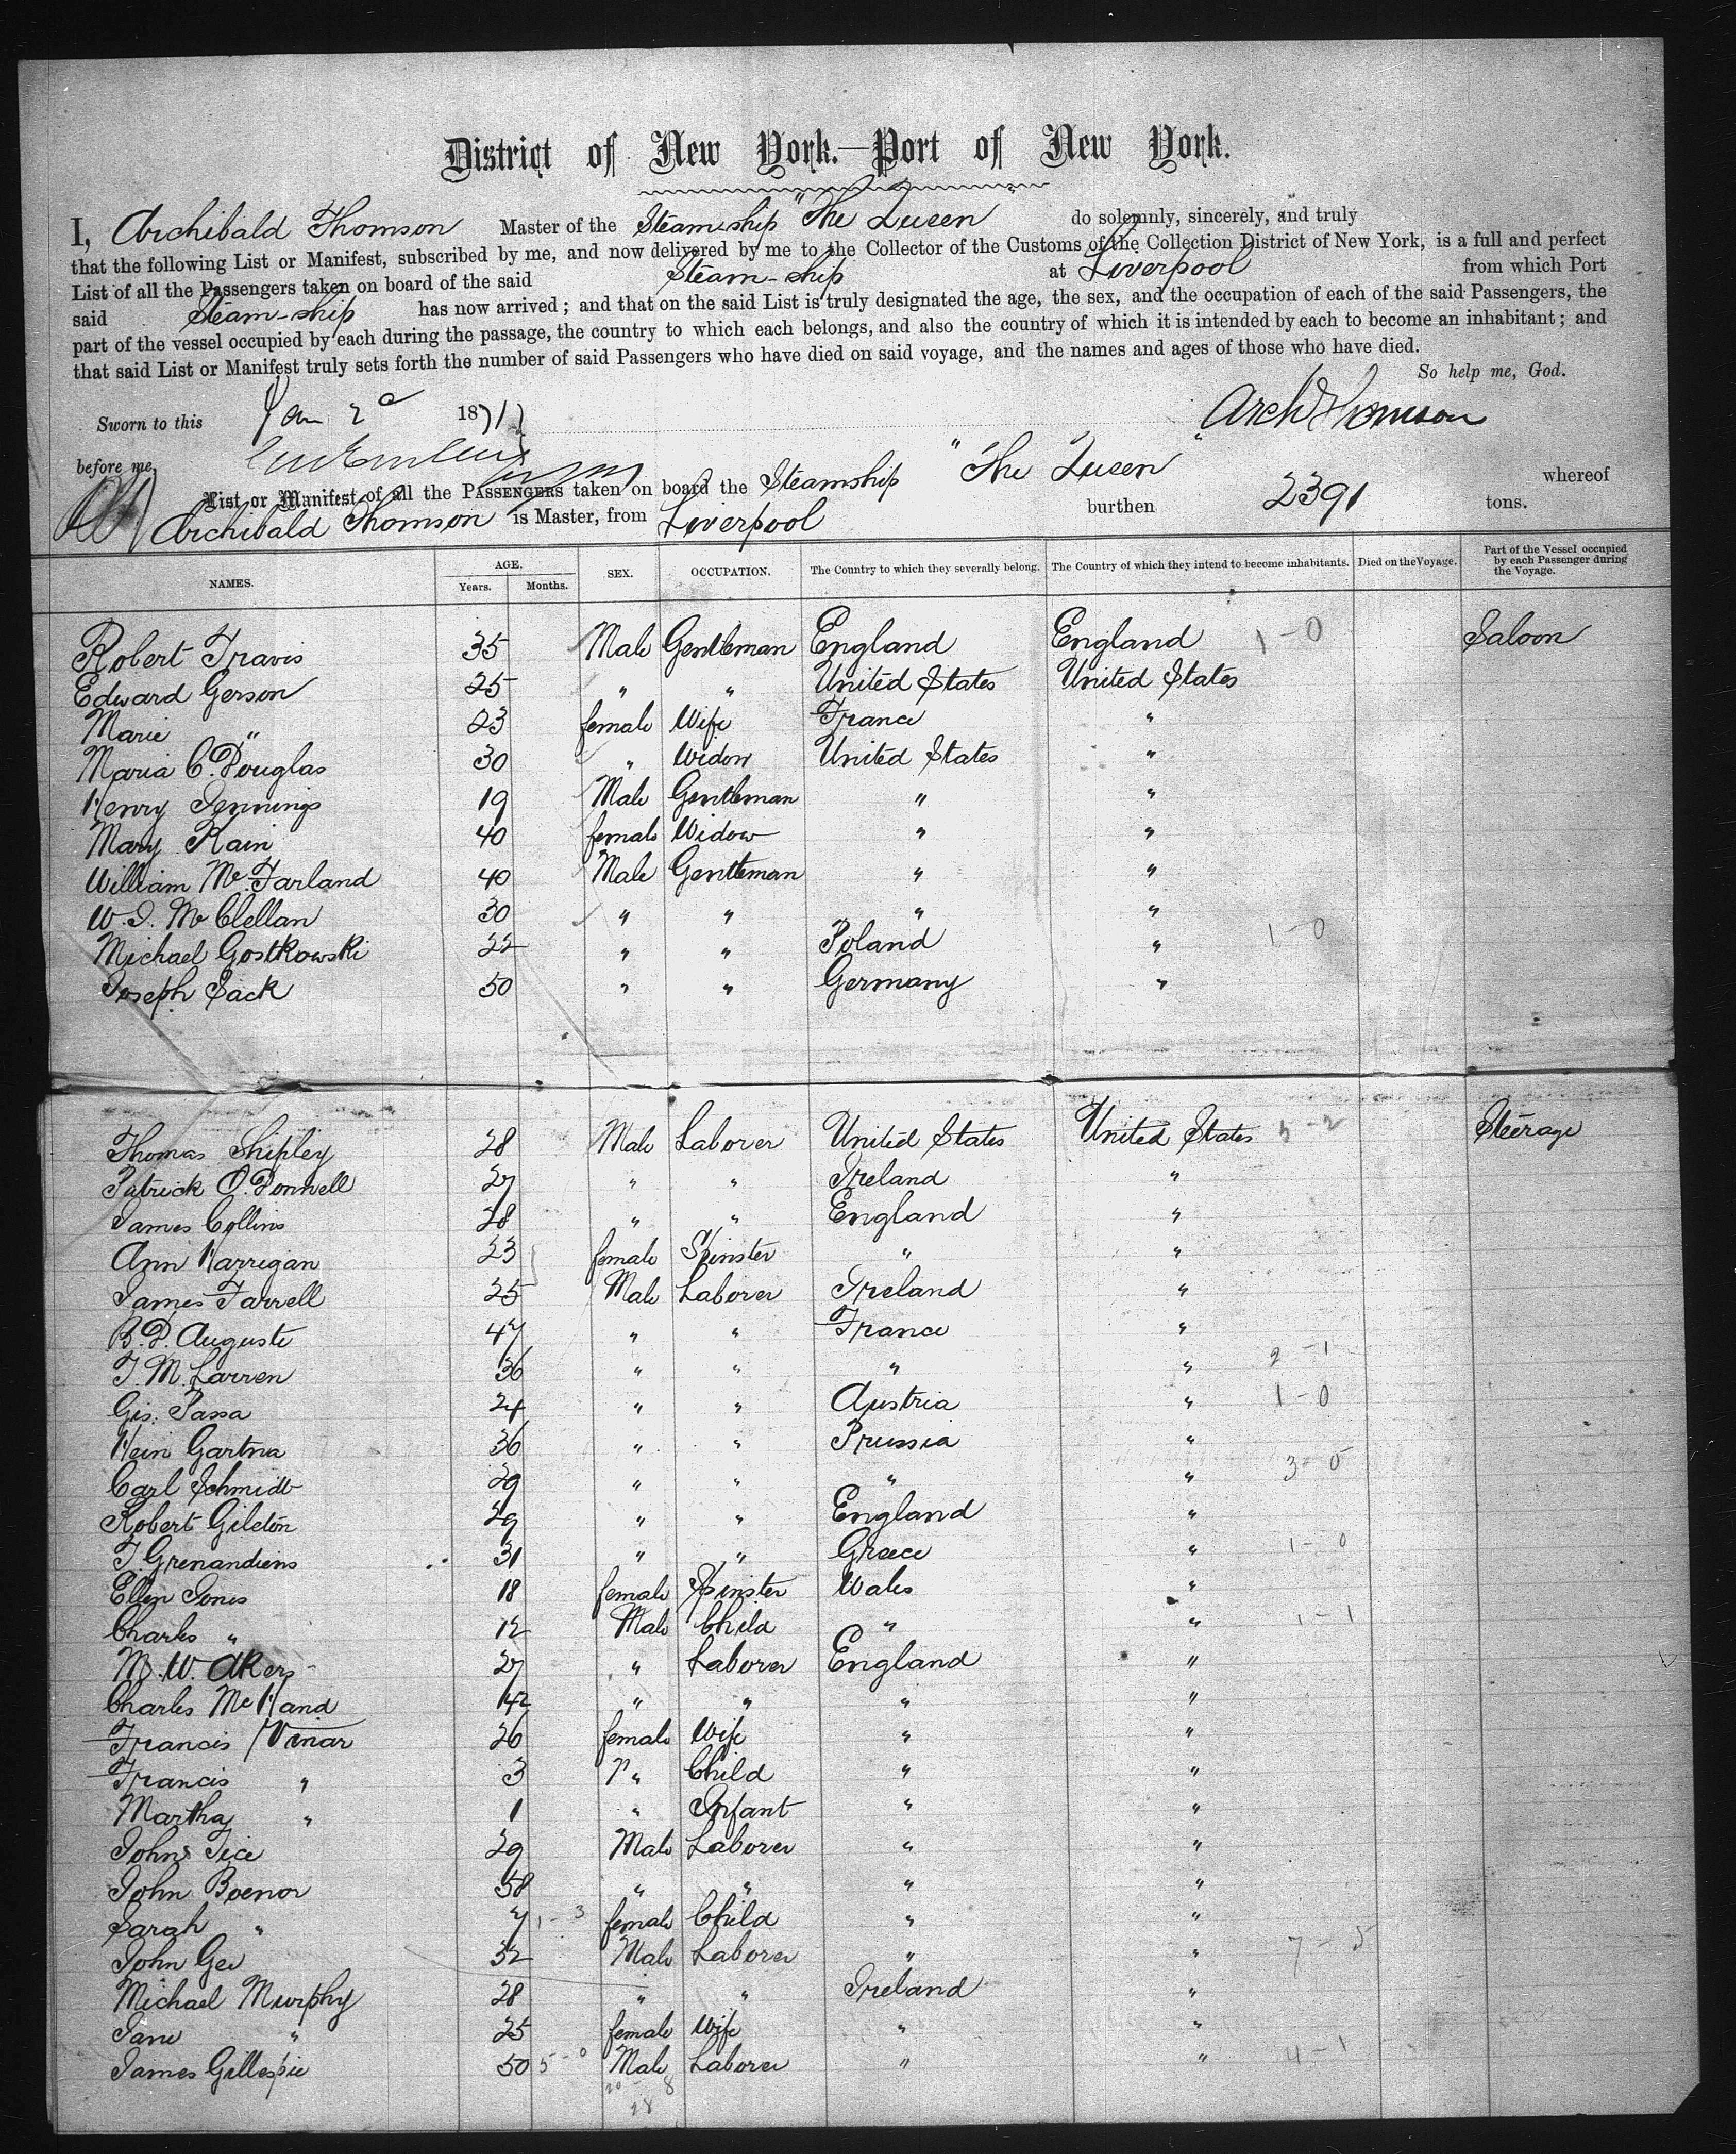 District of New York.—Port of New York.
I, Archibald Thomson Master of the Steamship "The Queen" do solemnly, sincerely, and truly
that the following List or Manifest, subscribed by me, and now delivered by me to the Collector of the Customs of the Collection District of New York, is a full and perfect
List of all the Passengers taken on board of the said Steam-ship at Liverpool from which Port
said Steam-ship has now arrived; and that on the said List is truly designated the age, the sex, and the occupation of each of the said Passengers, the
part of the vessel occupied by each during the passage, the country to which each belongs, and also the country of which it is intended by each to become an inhabitant; and
that said List or Manifest truly sets forth the number of said Passengers who have died on said voyage, and the names and ages of those who have died.
So help me, God.
Sworn to this Jan 2d 1871 Arch Thomson
before me,
List or Manifest of all the PASSENGERS taken on board the Steamship "The Queen" whereof
Archibald Thomson is Master, from Liverpool burthen 2391 tons.
NAMES. AGE. Years. Months. SEX. OCCUPATION. The Country to which they severally belong. The Country of which they intend to become inhabitants. Died on the Voyage. Part of the Vessel occupied by each Passenger during the Voyage.
Robert Travis 35 Male Gentleman England England 1-0 Saloon
Edward Gerson 25 " " United States United States
Marie " 23 female Wife France "
Maria C. Douglas 30 " Widow United States "
Henry Jennings 19 Male Gentleman " "
Mary Kain 40 female Widow " "
William McFarland 40 Male Gentleman " "
W. I. McClellan 30 " " " "
Michael Gostkowski 22 " " Poland " 1-0
Joseph Sack 50 " " Germany "
Thomas Shipley 28 Male Laborer United States United States 5-2 Steerage
Patrick O. Donnell 27 " " Ireland "
James Collins 28 " " England "
Ann Harrigan 23 female Spinster " "
James Farrell 25 Male Laborer Ireland "
B. P. Auguste 47 " " France "
T. M. Larren 36 " " " " 2-1
Gis. Passa 24 " " Austria " 1-0
Hein Gartna 36 " " Prussia "
Carl Schmidt 29 " " " " 3-0
Robert Gileton 29 " " England "
T. Grenandiens 31 " " Greece " 1-0
Ellen Jones 18 female Spinster Wales "
Charles " 12 Male Child " " 1-1
M. W. Akers 27 " Laborer England "
Charles McHand 42 " " " "
Francis Vinar 26 female Wife " "
Francis " 3 " Child " "
Martha " 1 " Infant " "
John Tice 29 Male Laborer " "
John Boenor 58 " " " "
Sarah " 7 1-3 female Child " "
John Gee 32 Male Laborer " " 7-5
Michael Murphy 28 " " Ireland "
Jane " 25 female Wife " "
James Gillespie 50 5-0 Male Laborer " " 4-1
20 8
28